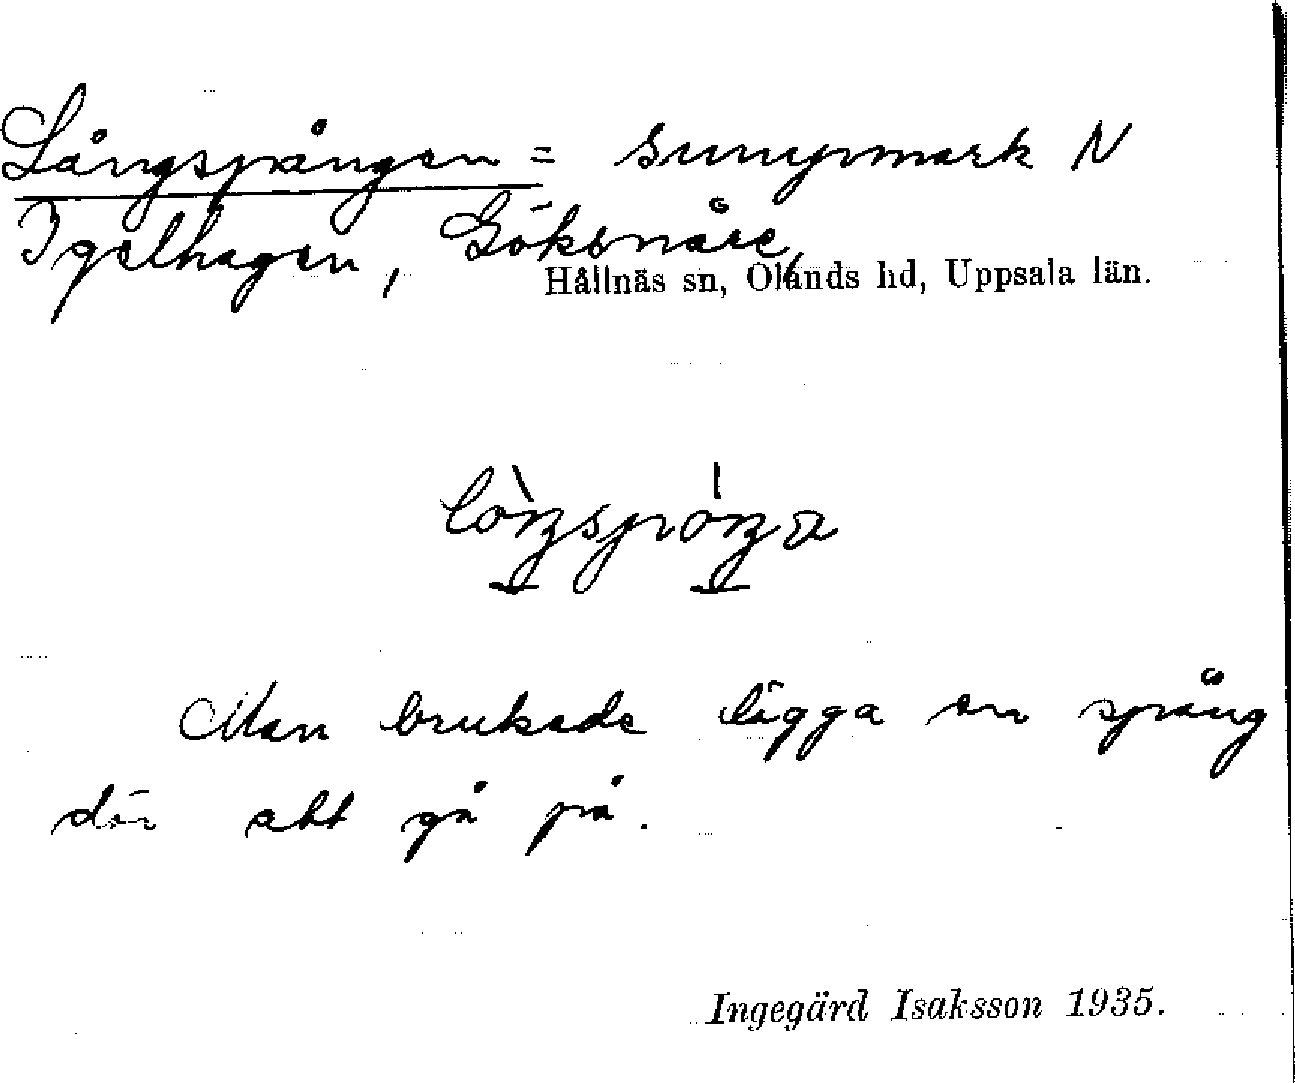 Långspången = sumpmark N
Igelhagen, Göksnåre,
Hållnäs sn, Olands hd, Uppsala län.
Man brukade lägga en spång
där att gå på.
Ingegärd Isaksson 1935.